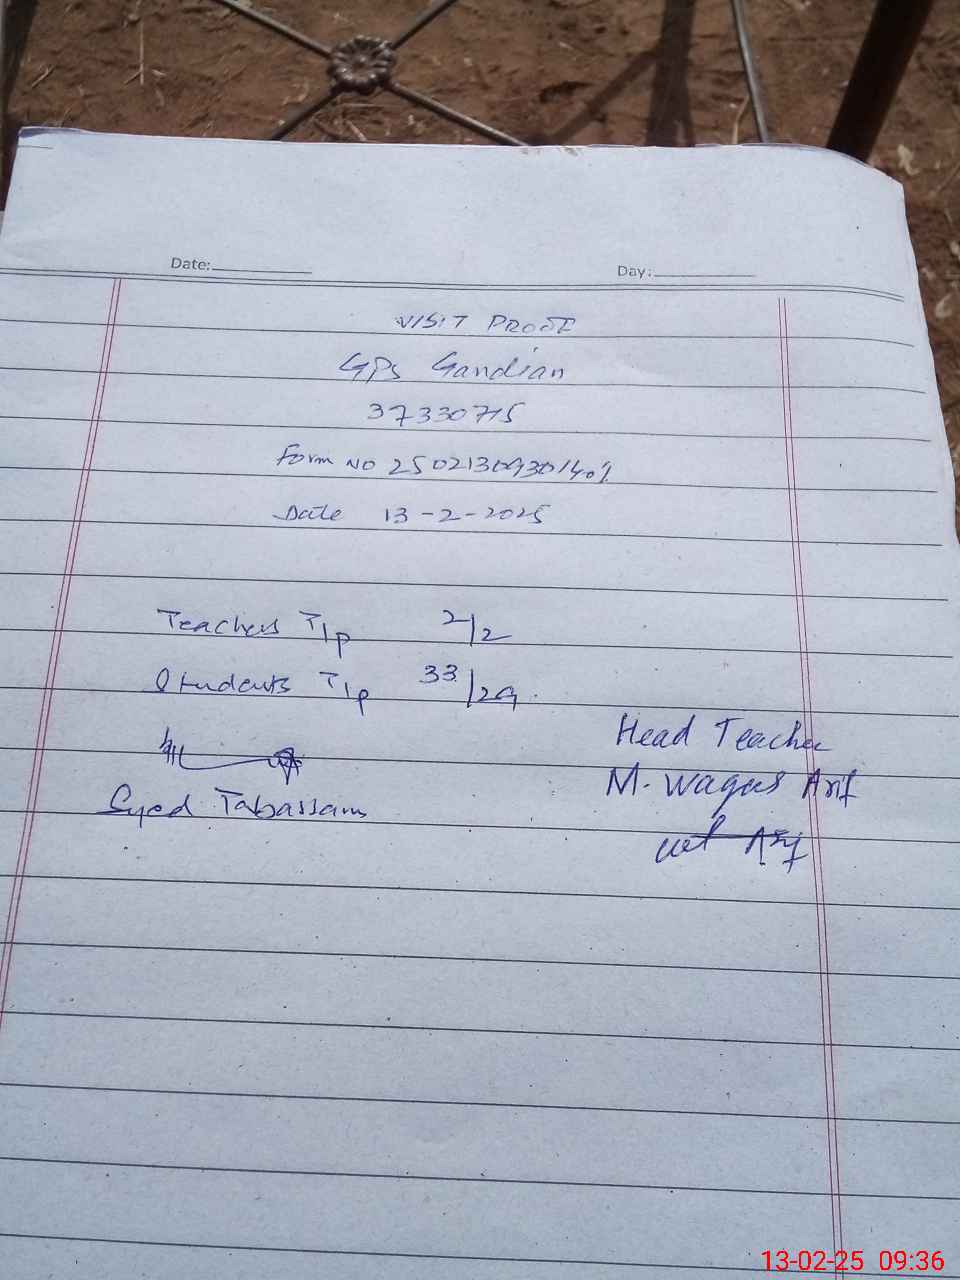 Date: Day:
VISIT PROOF
GPS Gandian
37330715
Form NO
Date 13-2-2025
Teachers T/p 2/2
Students T/p 33/29
Head Teacher
M. Waqas Arif
Syed Tabassam
Arif
13-02-25 09:36